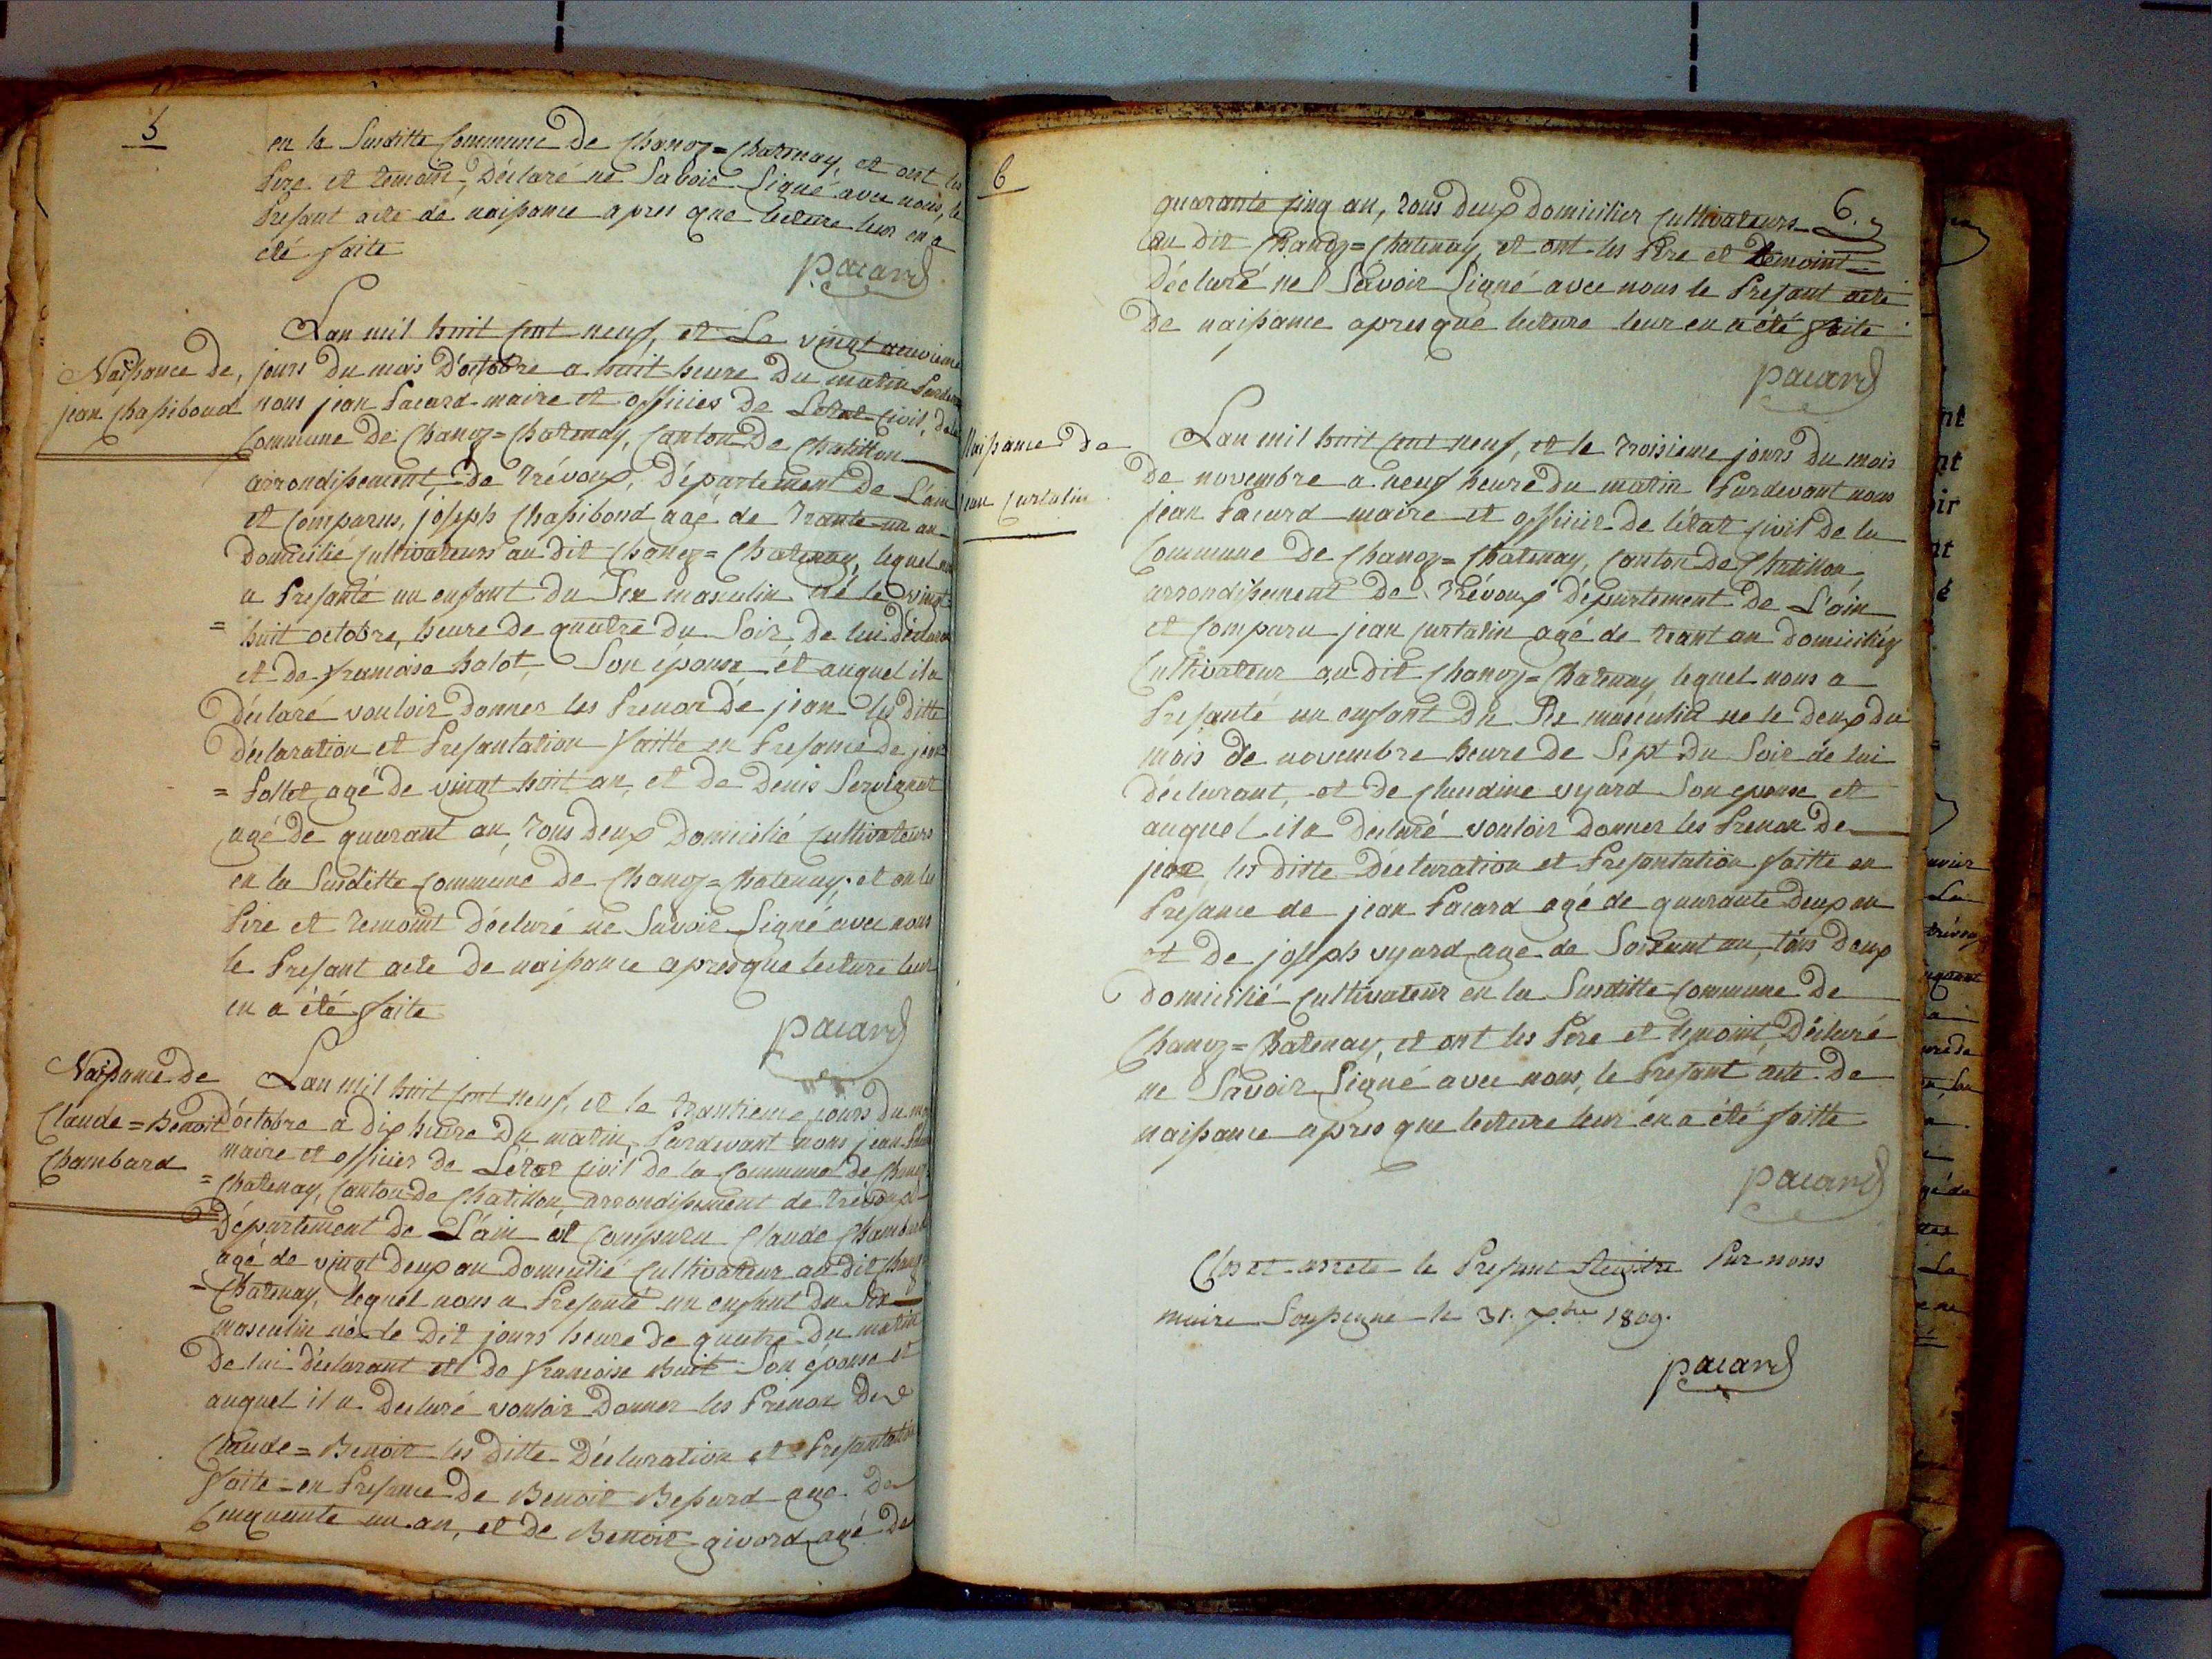 5
en la Susditte Commune De Chanoz=Chatenay, et ont les
Pere et temoint, Déclaré ne Savoir Signé avec nous, le
Presant acte de naissance apres que lecture leur en a
été faite
pacard
Naissance de,
jean Chassiboud
Lan mil huit cent neuf, et Le vingt neuvieme
jours du mois D'octobre a huit heure Du matin Pardevant
nous jean Pacard maire et officier de Létat Civil, de la
Commune de Chanoz=Chatenay, Canton De Chatillon
arrondissement, De trévoux, Département De L'ain
et Comparus, joseph Chassiboud agé de trante un an
Domicilié Cultivateurs au dit Chanoz=Chatenay, lequel nous
a Presanté un enfant du Sex masculin né le vingt
=huit octobre, heure de quatre du Soir, de lui Déclarant
et de francoise halot, Son épouse, et auquel il a
Déclaré vouloir Donner les Prenon De jean les ditte
Déclaration et Presantation faitte en Presance de jean
=Pollet agé de vingt huit an, et De Denis Servignat
agé De quarant an, tous Deux Domicilié Cultivateurs
en la Susditte Commune De Chanoz=Chatenay, et on les
Pere et temoint Déclaré ne Savoir Signé avec nous
le Presant acte De naissance apres que lecture leur
en a été faite
pacard
Naissance de
Claude=Benoit
Chambard
Lan mil huit cent neuf, et le trantieme jours du mois
d'octobre a dix heure Du matin, Pardevant nous jean Pacard
maire et officier de Létat Civil De la Commune de Chanoz
=Chatenay, Canton de Chatillon, arrondissement de trévoux
Département de L'ain et Comparu Claude Chambard
agé de vingt deux an Domicilié Cultivateur au dit Chanoz
=Chatenay, lequel nous a Presanté un enfant du Sex
masculin né le Dit jours heure de quatre Du matin
De lui déclarant et de francoise Buit Son épouse et
auquel il a Declaré vouloir Donner les Prenon De
Claude=Benoit les ditte Déclaration et Presantation
faite en Presance De Benoit Bessard age De
Cinquante un an, et de Benoit givord agé De
6
6.
quarante cinq an, tous deux Domicilier Cultivateurs
au dit Chanoz=Chatenay, et ont les Pere et temoint
Déclaré ne Savoir Signé avec nous le Presant acte
De naissance apres que lecture leur en a été faite
pacard
Naissance de
jean Curtalin
Lan mil huit cent neuf, et le troisieme jours Du mois
De novembre a neuf heure du matin Pardevant nous
jean Pacard maire et officier de létat Civil de la
Commune De Chanoz=Chatenay, Canton De Chatillon
arrondissement De trévoux Département De L'ain
et Comparu jean Curtalin agé de trant an Domiciliéz
Cultivateur au dit Chanoz=Chatenay lequel nous a
Presanté un enfant Du Sex masculin ne le Deux du
mois de novembre heure de Sept Du Soir de lui
déclarant, et de Claudine vyard Son epouse et
auquel il a Declaré vouloir Donner les Prenon De
jean, les ditte Déclaration et Presantation faitte en
Présance de jean Pacard agé de quarante Deux an
et De joseph vyard age de Soixant an, tous Deux
Domicilié Cultivateur en la Susditte Commune De
Chanoz=Chatenay, et ont les Pére et temoint Déclaré
ne Savoir Signé avec nous, le Presant acte De
naissance apres que lecture leur en a été faitte
pacard
Clos et arrete le Present Registre Par nous
maire Soussigné le 31. xbre 1809.
pacard